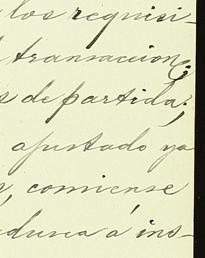 los requisi-
transaccion
de partida;
apuntado ya
comiense
á ins-